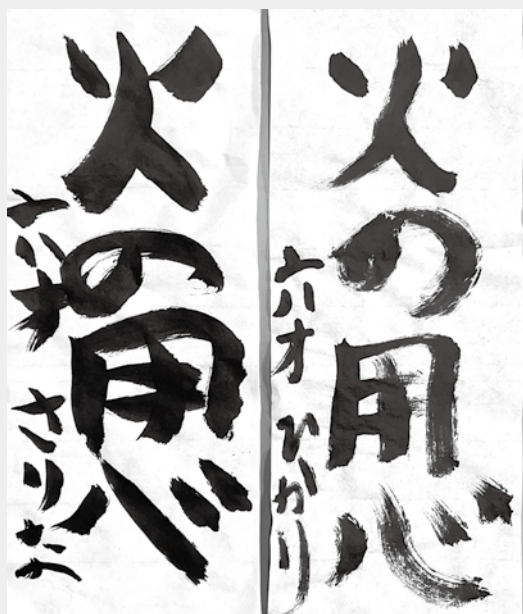 火の用心
六才 ひかり
火の用心
六才